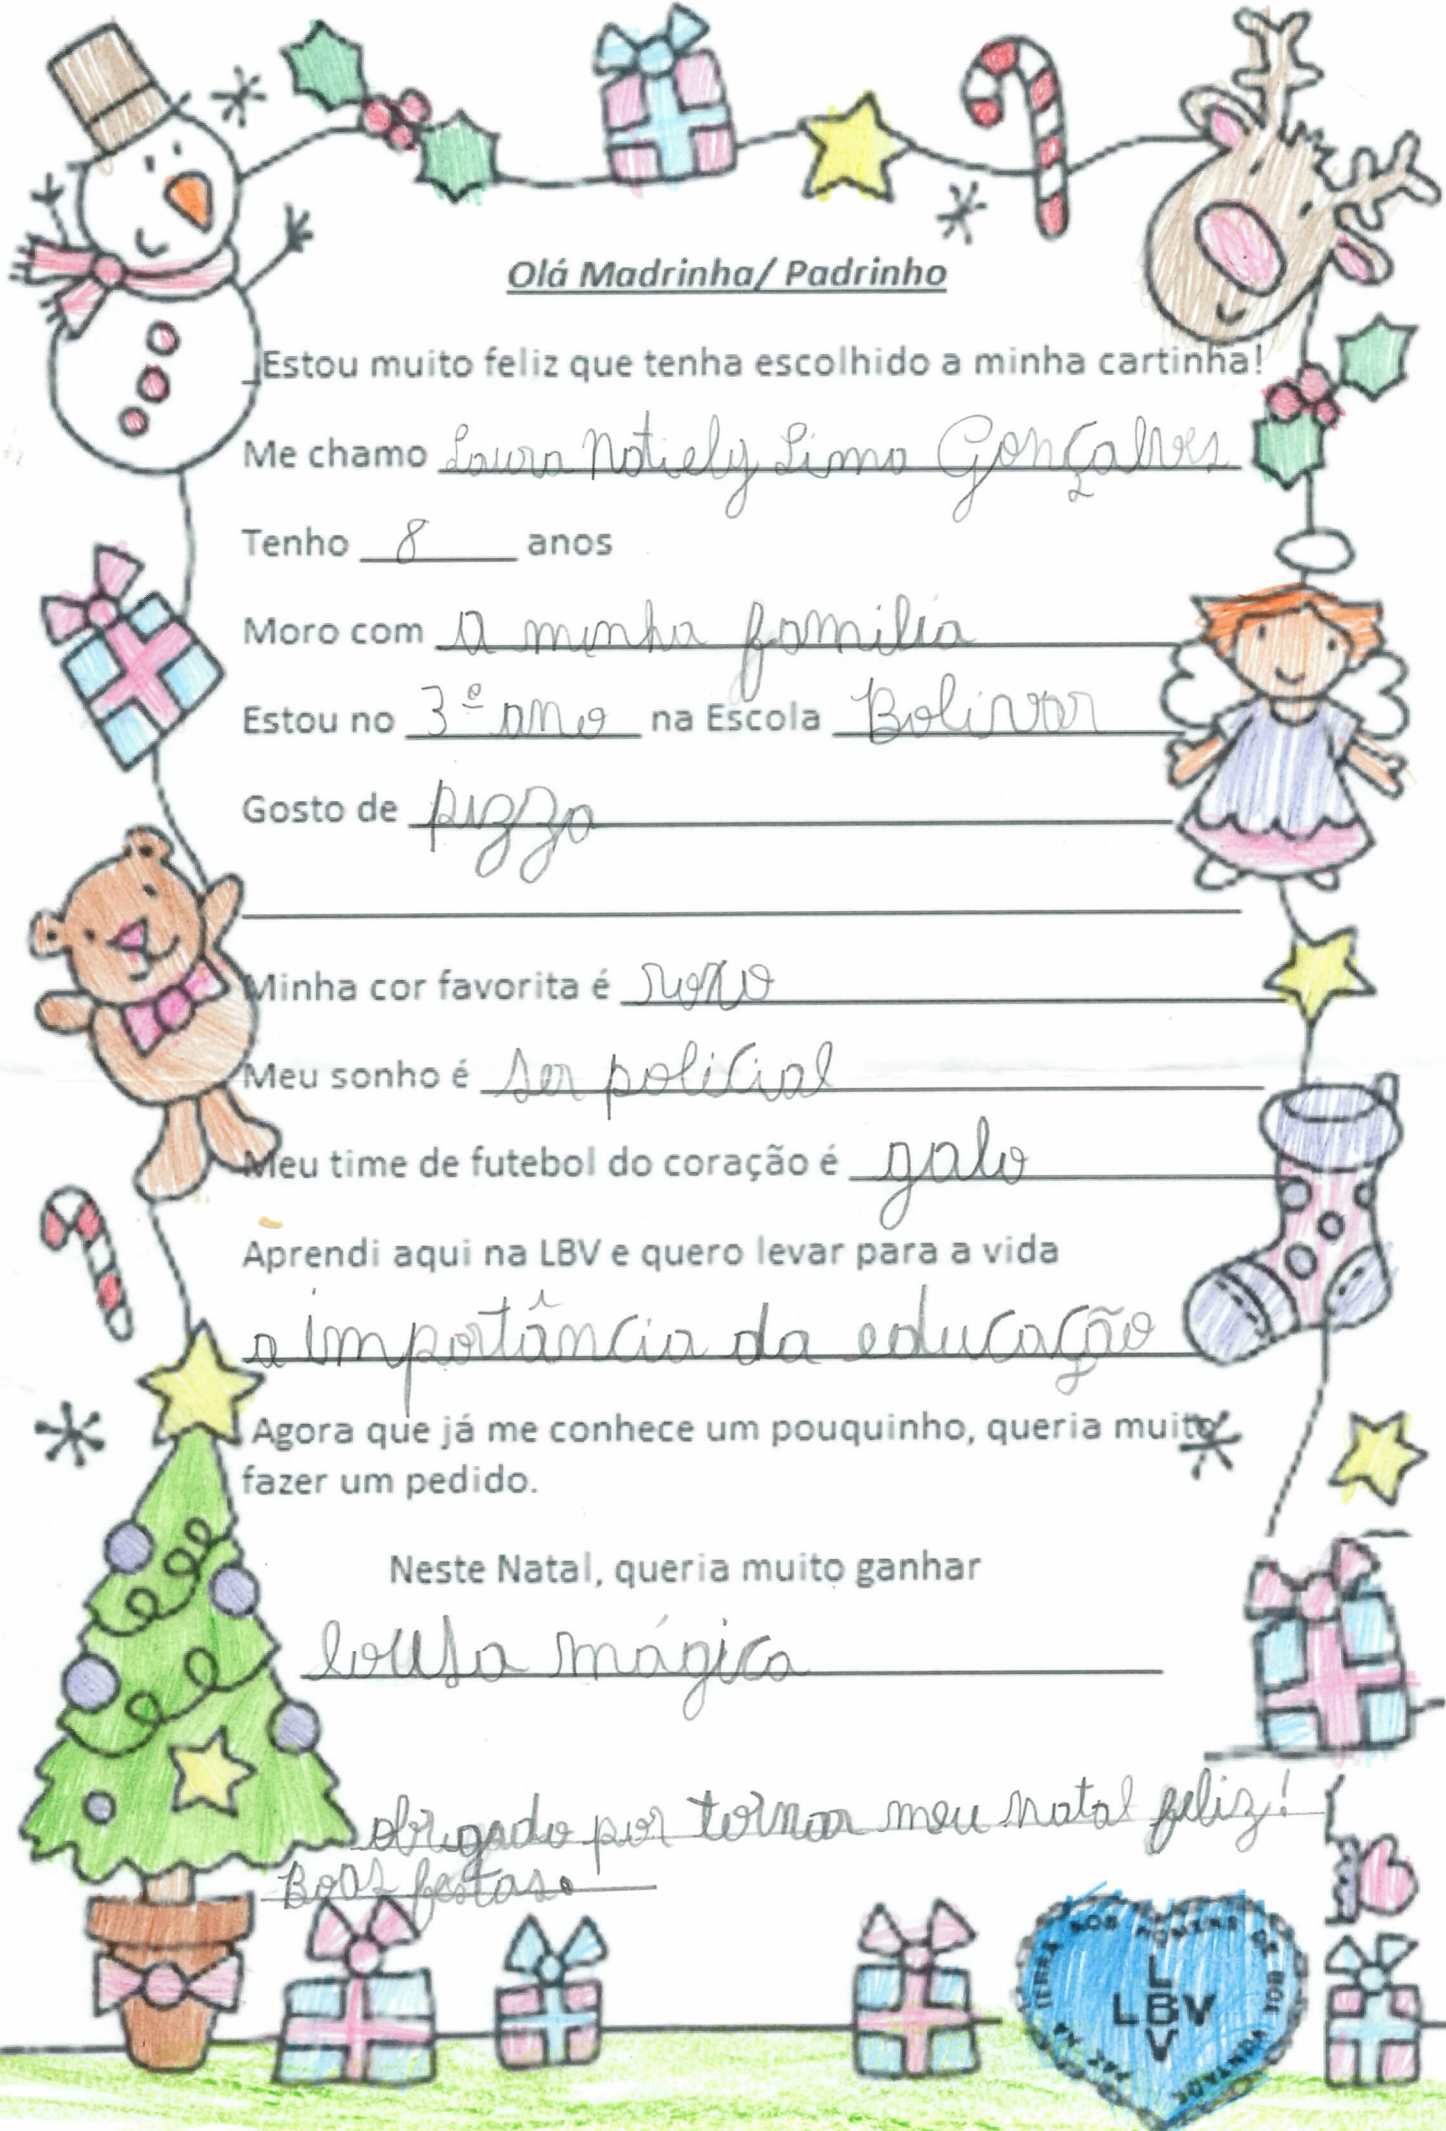 Olá Madrinha/ Padrinho
Estou muito feliz que tenha escolhido a minha cartinha!
Me chamo Laura Natiely Lima Gonçalves
Tenho 8 anos
Moro com a minha familia
Estou no 3º ano na Escola Bolivar
Gosto de pizza
Minha cor favorita é roxo
Meu sonho é ser policial
Meu time de futebol do coração é galo
Aprendi aqui na LBV e quero levar para a vida
a importância da educação
Agora que já me conhece um pouquinho, queria muito
fazer um pedido.
Neste Natal, queria muito ganhar
lousa mágica
obrigado por tornar meu natal feliz!
Boas festas.
PAZ NA TERRA AOS HOMENS DE BOA VONTADE
L
LBV
V